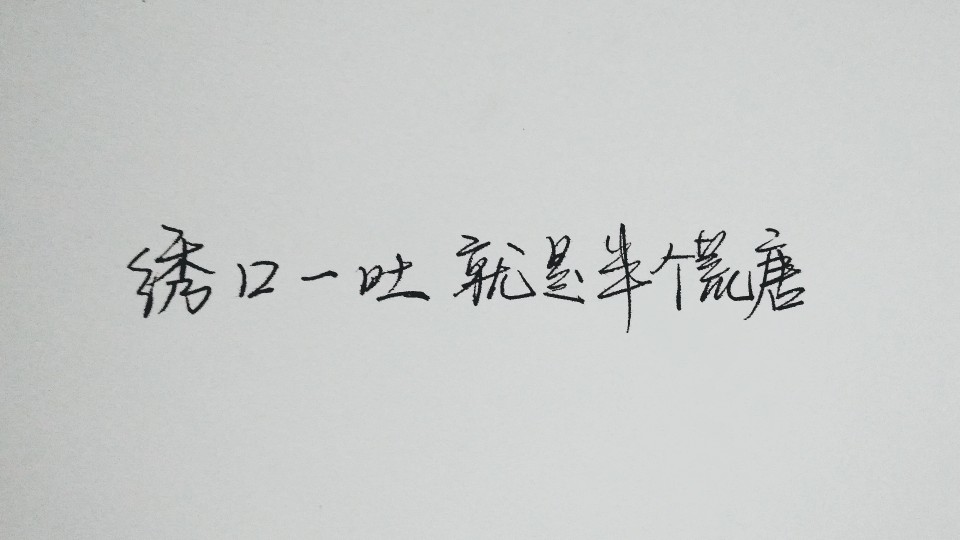 绣口一吐 就是半个荒唐